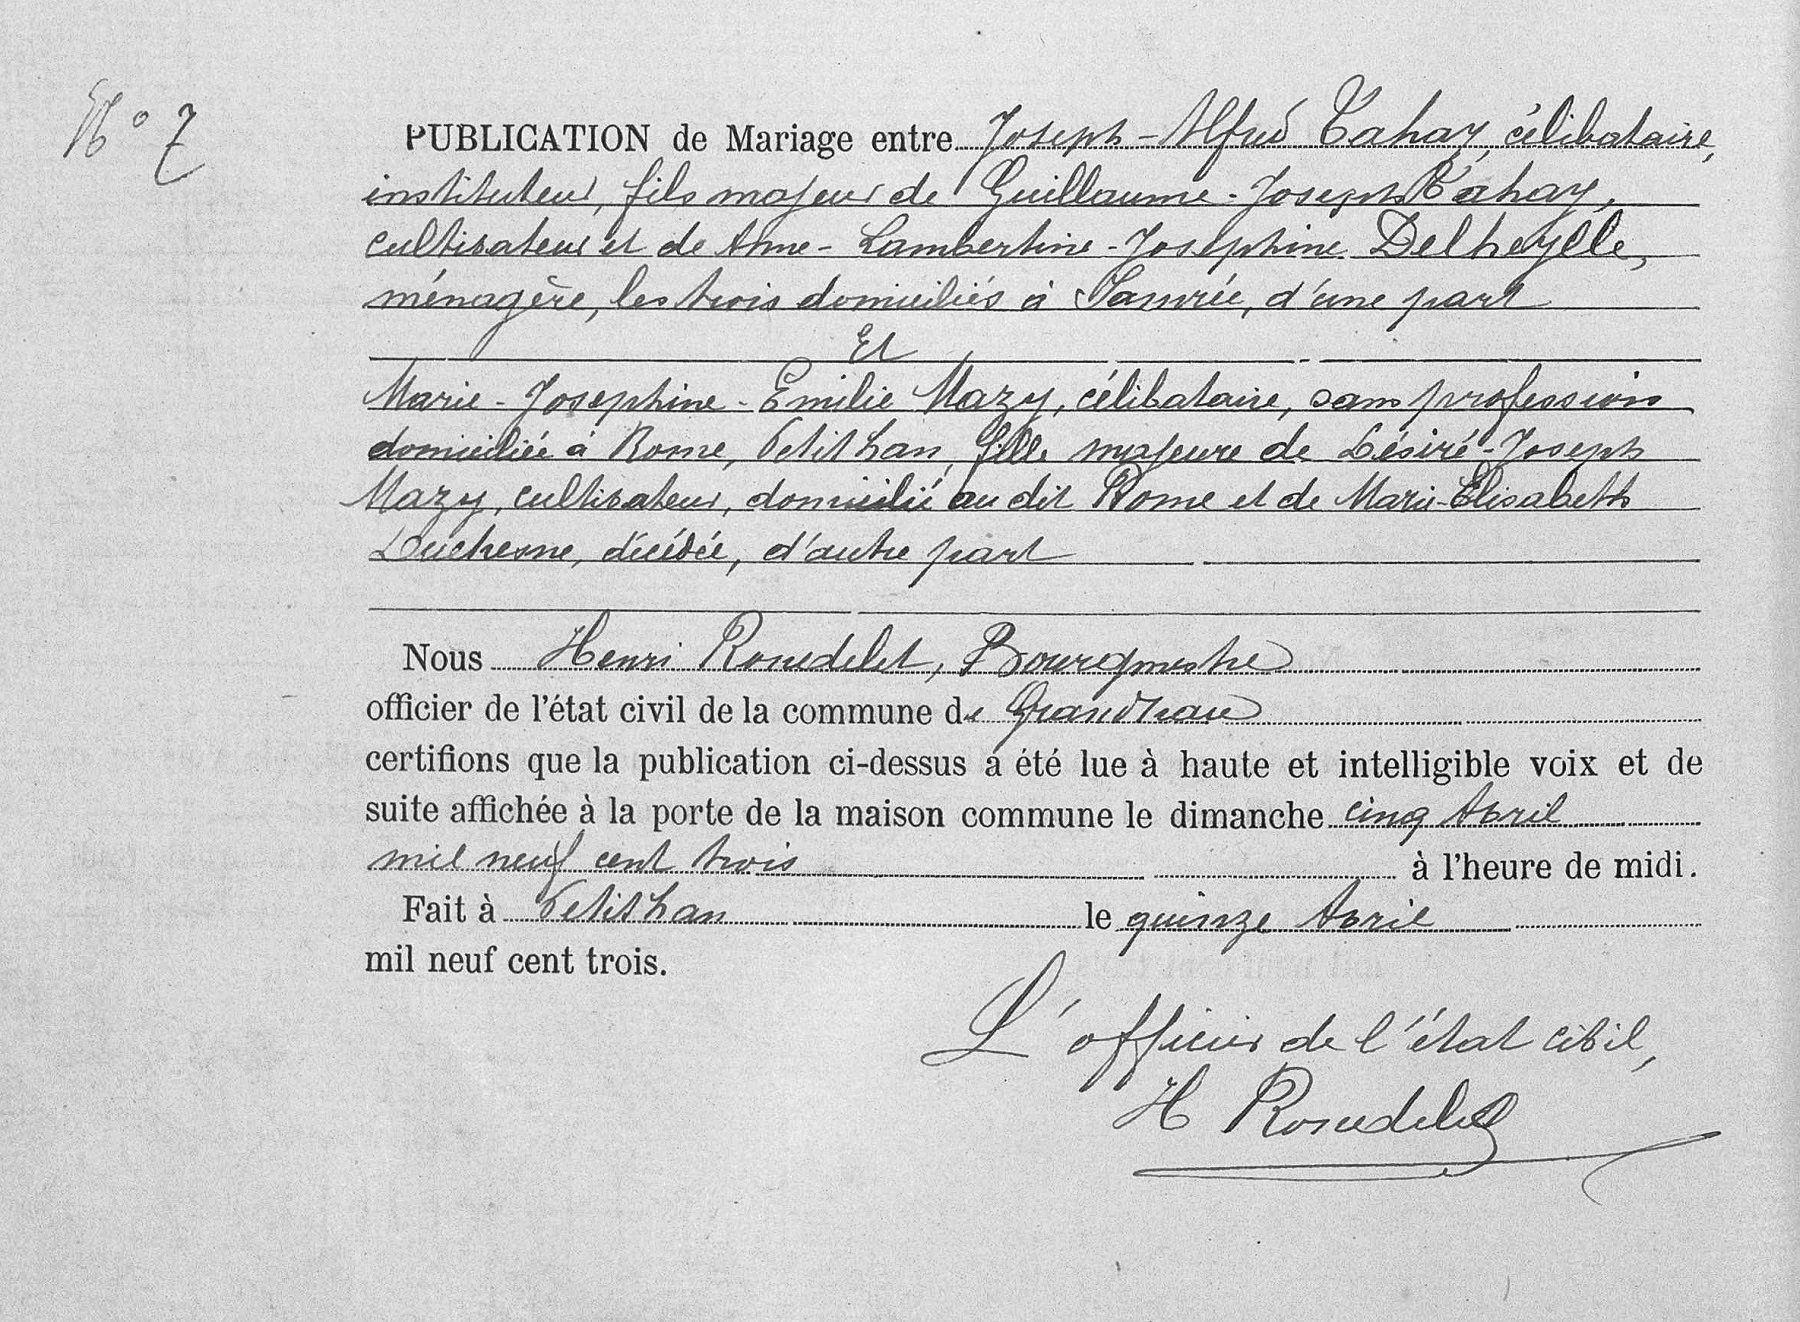 N° 7
PUBLICATION de Mariage entre Joseph-Alfred Tahay, célibataire,
instituteur, fils majeur de Guillaume-Joseph Tahay,
cultivateur et de Anne-Lambertine-Josephine Delheylle,
ménagère, les trois domiciliés à Samrée, d'une part
Et
Marie-Josephine-Emilie Mazy, célibataire, sans profession
domiciliée à Rome, Petithan, fille majeure de Désiré-Joseph
Mazy, cultivateur, domicilié au dit Rome et de Marie-Elisabeth
Duchesne, décédée, d'autre part
Nous Henri Rondelet, Bourgmestre
officier de l'état civil de la commune de Grandhan
certifions que la publication ci-dessus a été lue à haute et intelligible voix et de
suite affichée à la porte de la maison commune le dimanche cinq Avril
mil neuf cent trois à l'heure de midi.
Fait à Petithan le quinze Avril
mil neuf cent trois.
L'officier de l'état civil,
H Rondelet